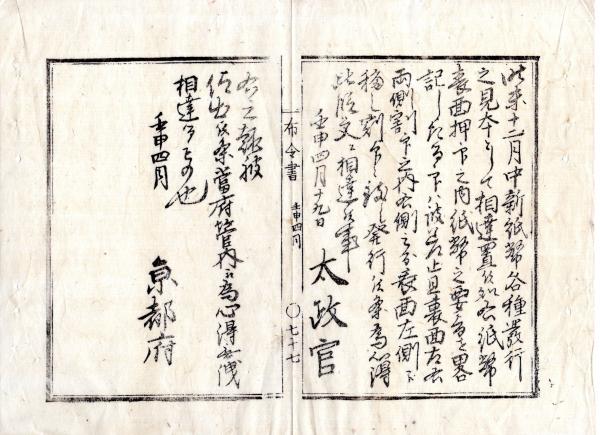 昨未十二月中新紙幣各種發行
之見本として相達置候処右紙幣
裏面押印之内紙幣之要旨を畧
記したる印ハ被差止且裏面左右
両側割印之内右側ハ表面左側ニ
移し割印し發行候条為心得
此段更ニ相達候事
壬申四月十九日
太政官
布令書
壬申四月
〇七十七
右之趣被
仰出候条當府管内ニ為心得無洩
相達るもの也
壬申四月
京都府